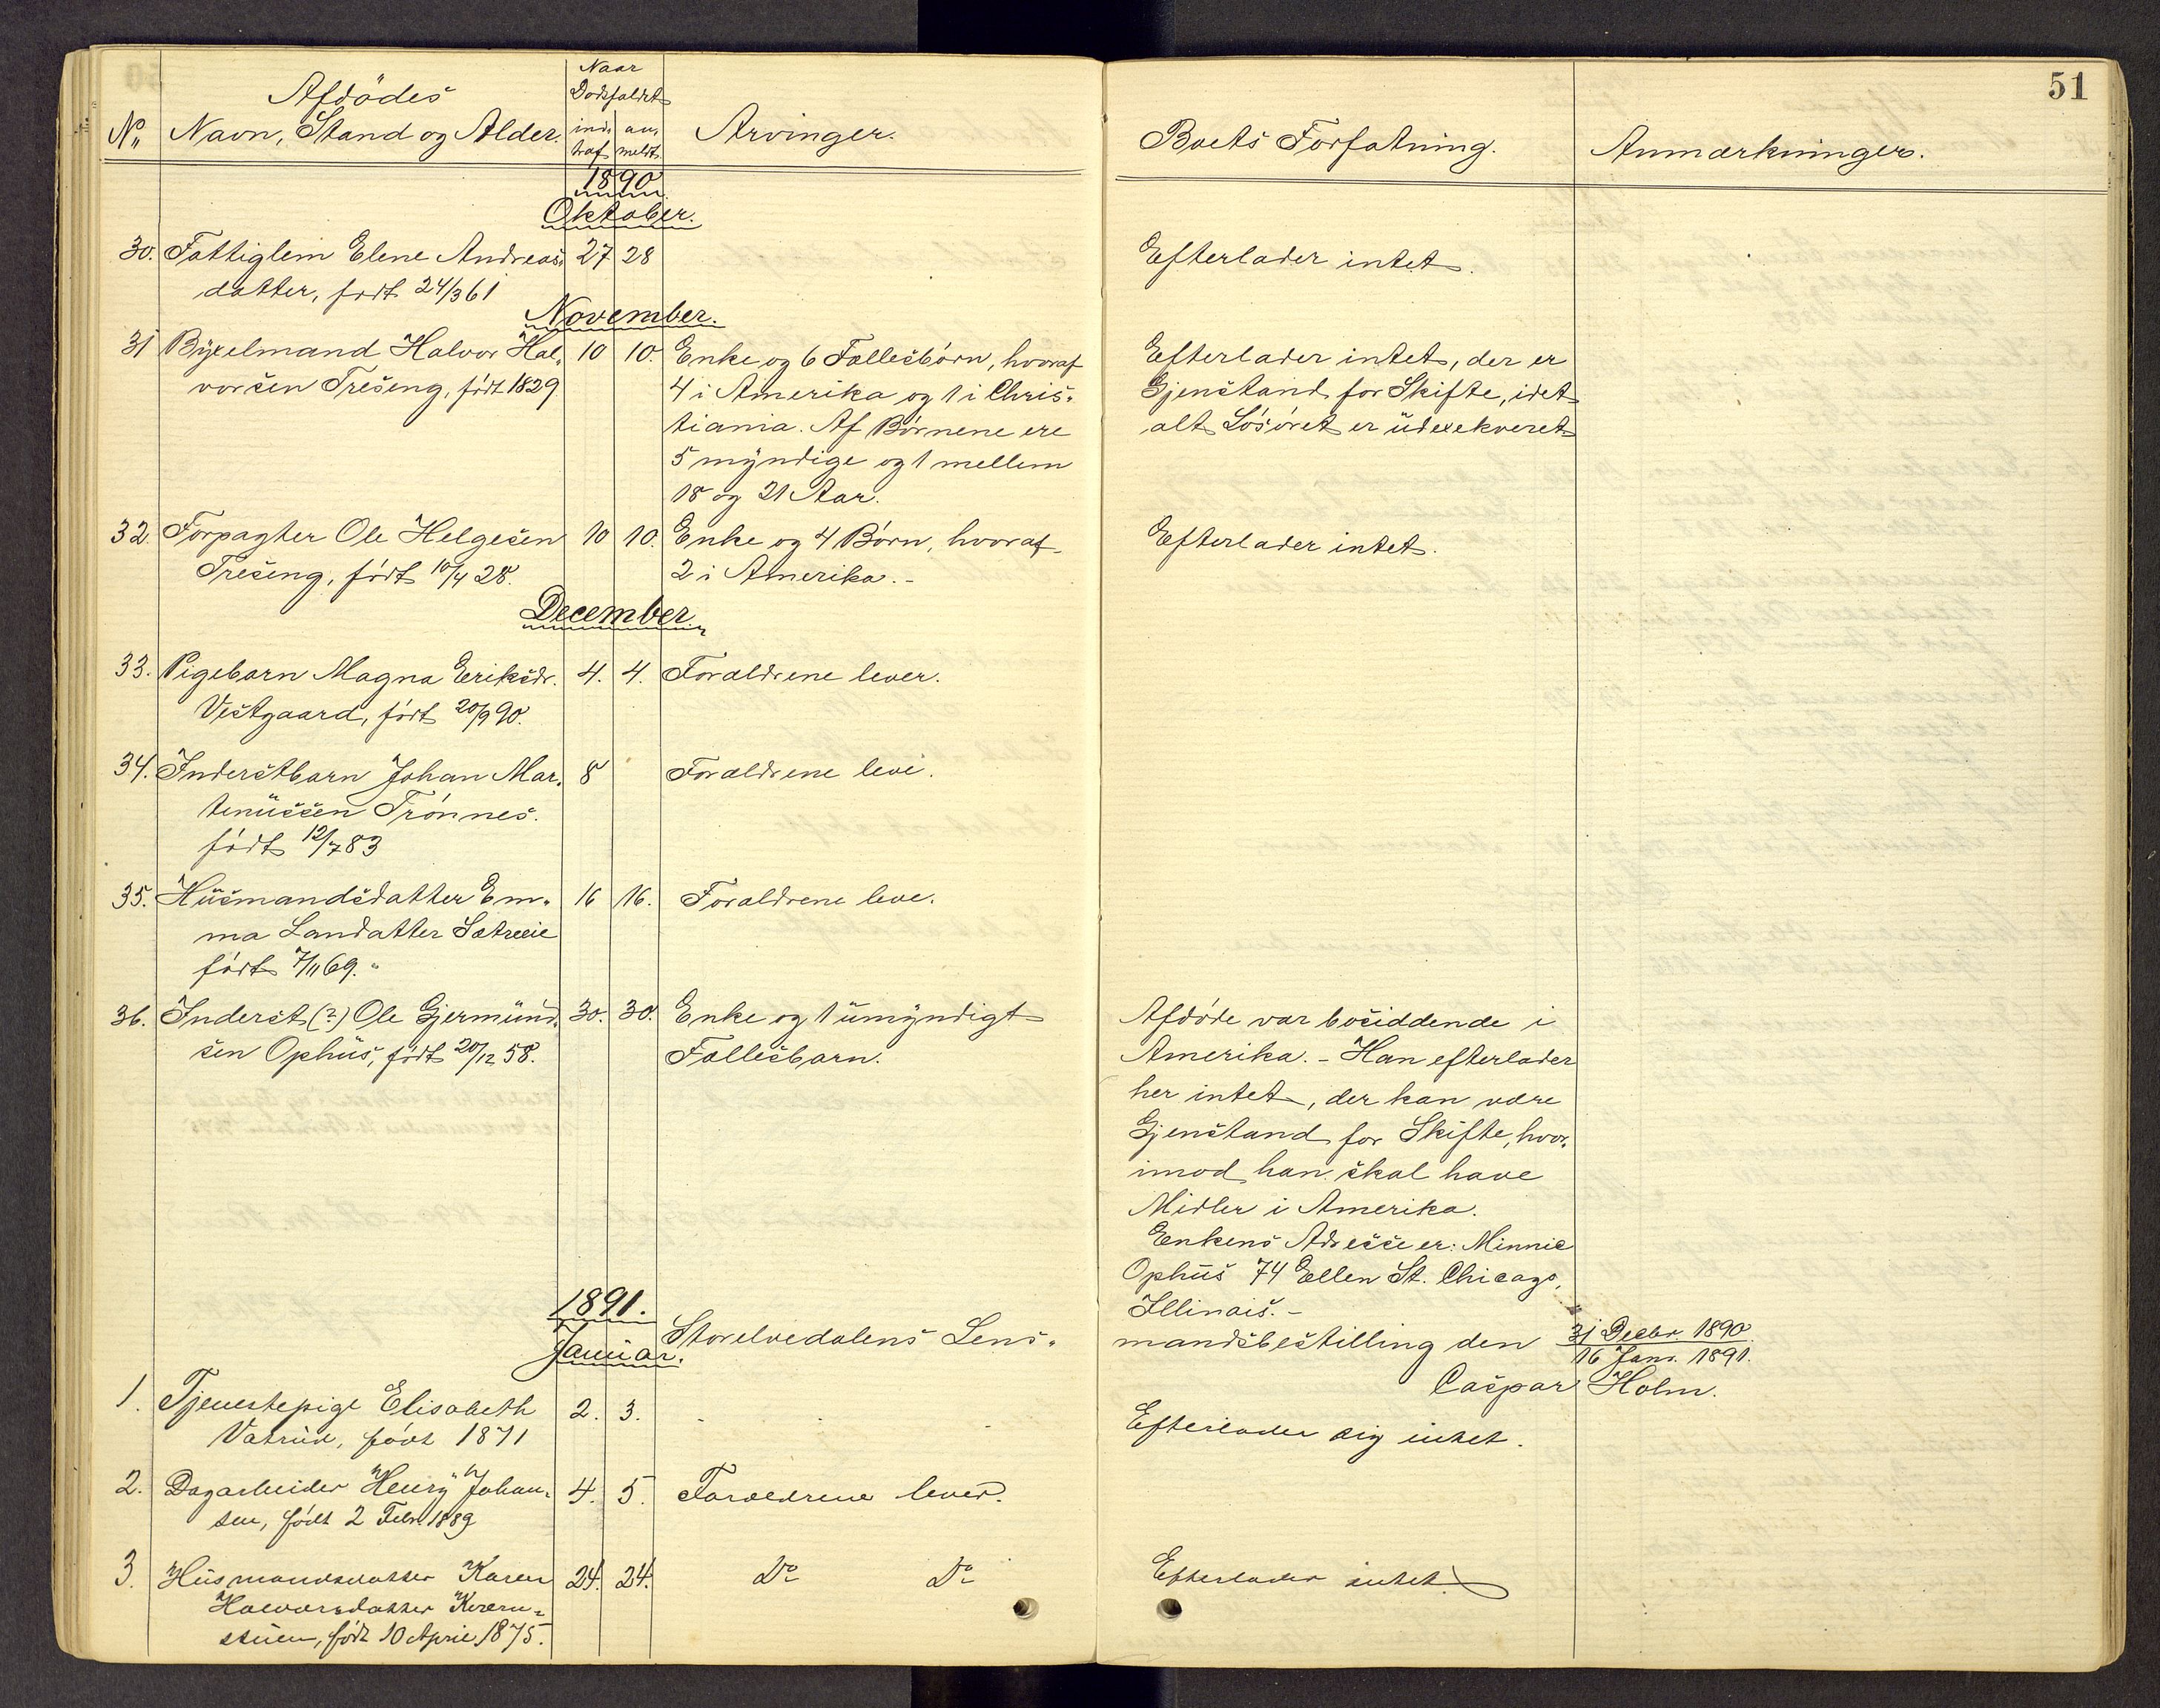 51
Afdödes
Naar
Dødsfaldet
No Navn, Stand og Alder. ind- traf an- meldt Arvinger. Boets Forfatning. Anmærkninger.
1890
Oktober.
30. Fattiglem Elene Andreas- 27 28 Efterlader intet.
datter, født 24/3 61
November.
31 Byxelmand Halvor Hal- 10 10. Enke og 6 Fællesbørn, hvoraf Efterlader intet, der er
vorsen Treseng, født 1829 4 i Amerika og 1 i Chris- Gjenstand for Skifte, idet
tiania. Af Børnene ere alt Løsøret er udexekveret
5 myndige og 1 mellem
18 og 21 Aar.
32. Forpagter Ole Helgesen 10 10. Enke og 4 Børn, hvoraf Efterlader intet.
Treseng, født 10/4 28. 2 i Amerika. -
December
33. Pigebarn Magna Eriksdr. 4. 4. Forældrene lever.
Vestgaard, født 20/9 90.
34. Inderstbarn Johan Mar- 8 Forældrene leve.
tenussen Trønnes.
født 12/7 83
35. Husmandsdatter Em- 16 16. Forældrene leve.
ma Landatter
født 7/11 69.
36. Inderst (?) Ole Gjermund- 30. 30. Enke og 1 umyndigt Afdøde var bosiddende i
sen Ophus, født 20/12 58. Fællesbarn. Amerika. - Han efterlader
her intet, der kan være
Gjenstand for Skifte, hvor-
imod han skal have
Midler i Amerika.
Enkens Adresse er: Minnie
Ophus 74 Ellen St. Chicago,
Illinais. -
1891.
Januar. Storelvedalens Lens- mandsbestilling den 31 Decbr. 1890
16 Janr. 1891.
Caspar Holm.
1. Tjenestepige Elisabeth 2. 3. Efterlader sig intet.
Vatrud, født 1871
2. Dagarbeider Henry Johan- 4. 5. Forældrene lever.
sen, født 2 Febr. 1889
3. Husmandsdatter Karen 24. 24. Do Do Efterlader intet.
Halvorsdatter
stuen, født 10 April 1875.